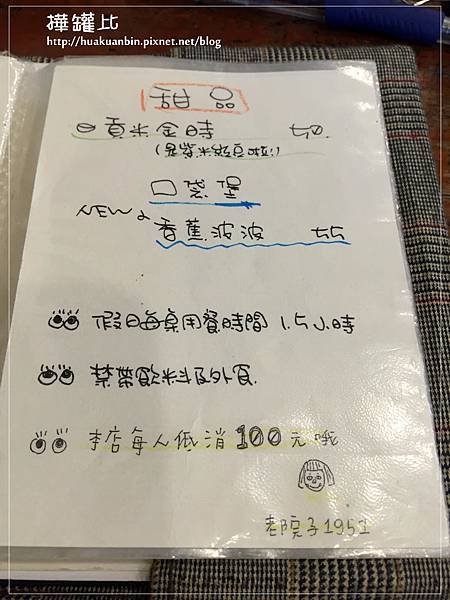 樺罐比
http://huakuanbin.pixnet.net/blog
甜品
貢米金時 50.
(是紫米紅豆啦!)
口袋堡
NEW 香蕉波波 55
假日每桌用餐時間 1.5小時
禁帶飲料及外食.
本店每人低消100元哦
老院子1951